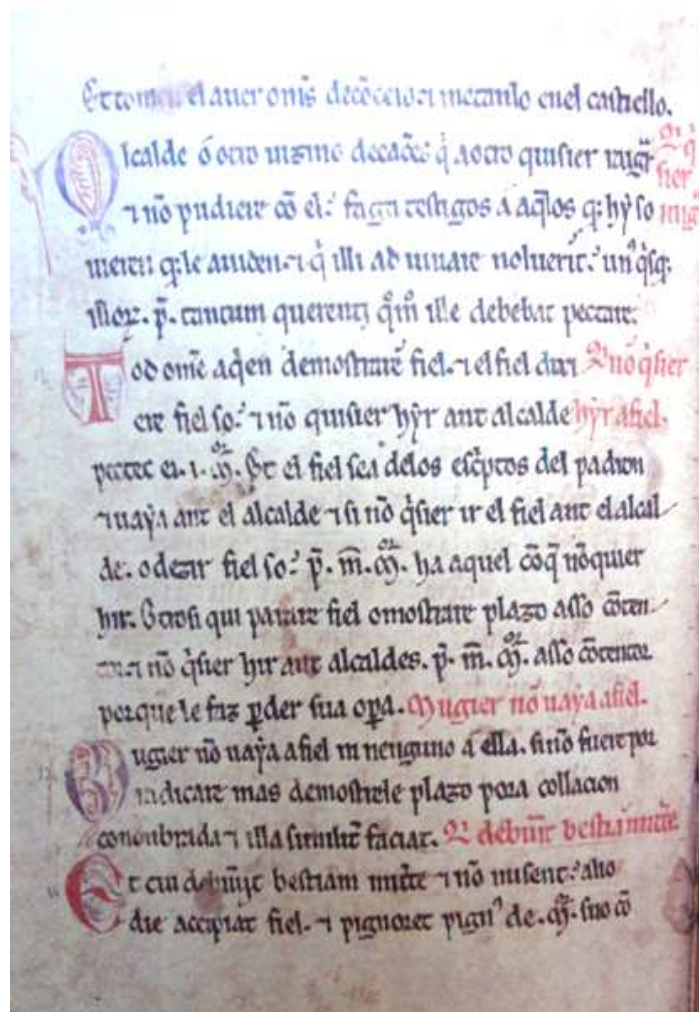 Et tomen el auer om̄s de cōceio. ⁊ metanlo enel castiello.
Alcalde ó otro uezino q̄ aotro quisier
⁊ nō pudiere cō el: faga testigos a aq̄los q; hy̓ so
q; le aiuden. ⁊ q̄ illi ad iuuare noluerīt: un⁹ q̄sq;
illoꝝ. p̄. tantum querenti q̄m̄ ille debebat pectare.
Tod om̄e aq̄en demostrarē fiel. ⁊ el fiel Qui nō q̄sier
ere fiel so: ⁊ nō quisier hẏr ant alcalde hẏr a fiel.
pectet ei. i. m̄r. Et el fiel sea delos esc̄ptos del padron
⁊ uaẏa ant el alcalde ⁊ si nō q̄sier ir el fiel ant el alcal
de. o dezir fiel so: p̄. m̄. m̄r. ha aquel cōq̄ nō quier
hir. Otrosi qui parare fiel o mostrare plazo asso cōten
tor ⁊ nō q̄sier hir ant alcaldes. p̄. m̄. m̄r. asso cōtentor
porque le faz p̱der sua op̱a. Mugier nō uaẏa a fiel.
Mugier nō uaẏa a fiel ni nenguno a ella. si nō fuere por
radicare mas demostrele plazo pora collacion
connōbrada ⁊ illa similit̄ faciat. Qui debuīt bestiā mitt̄e
Et cui debuīt bestiam mitt̄e ⁊ nō misent: alio
die accipiat fiel. ⁊ pignoret pign⁹ de. m̄r. suo cō